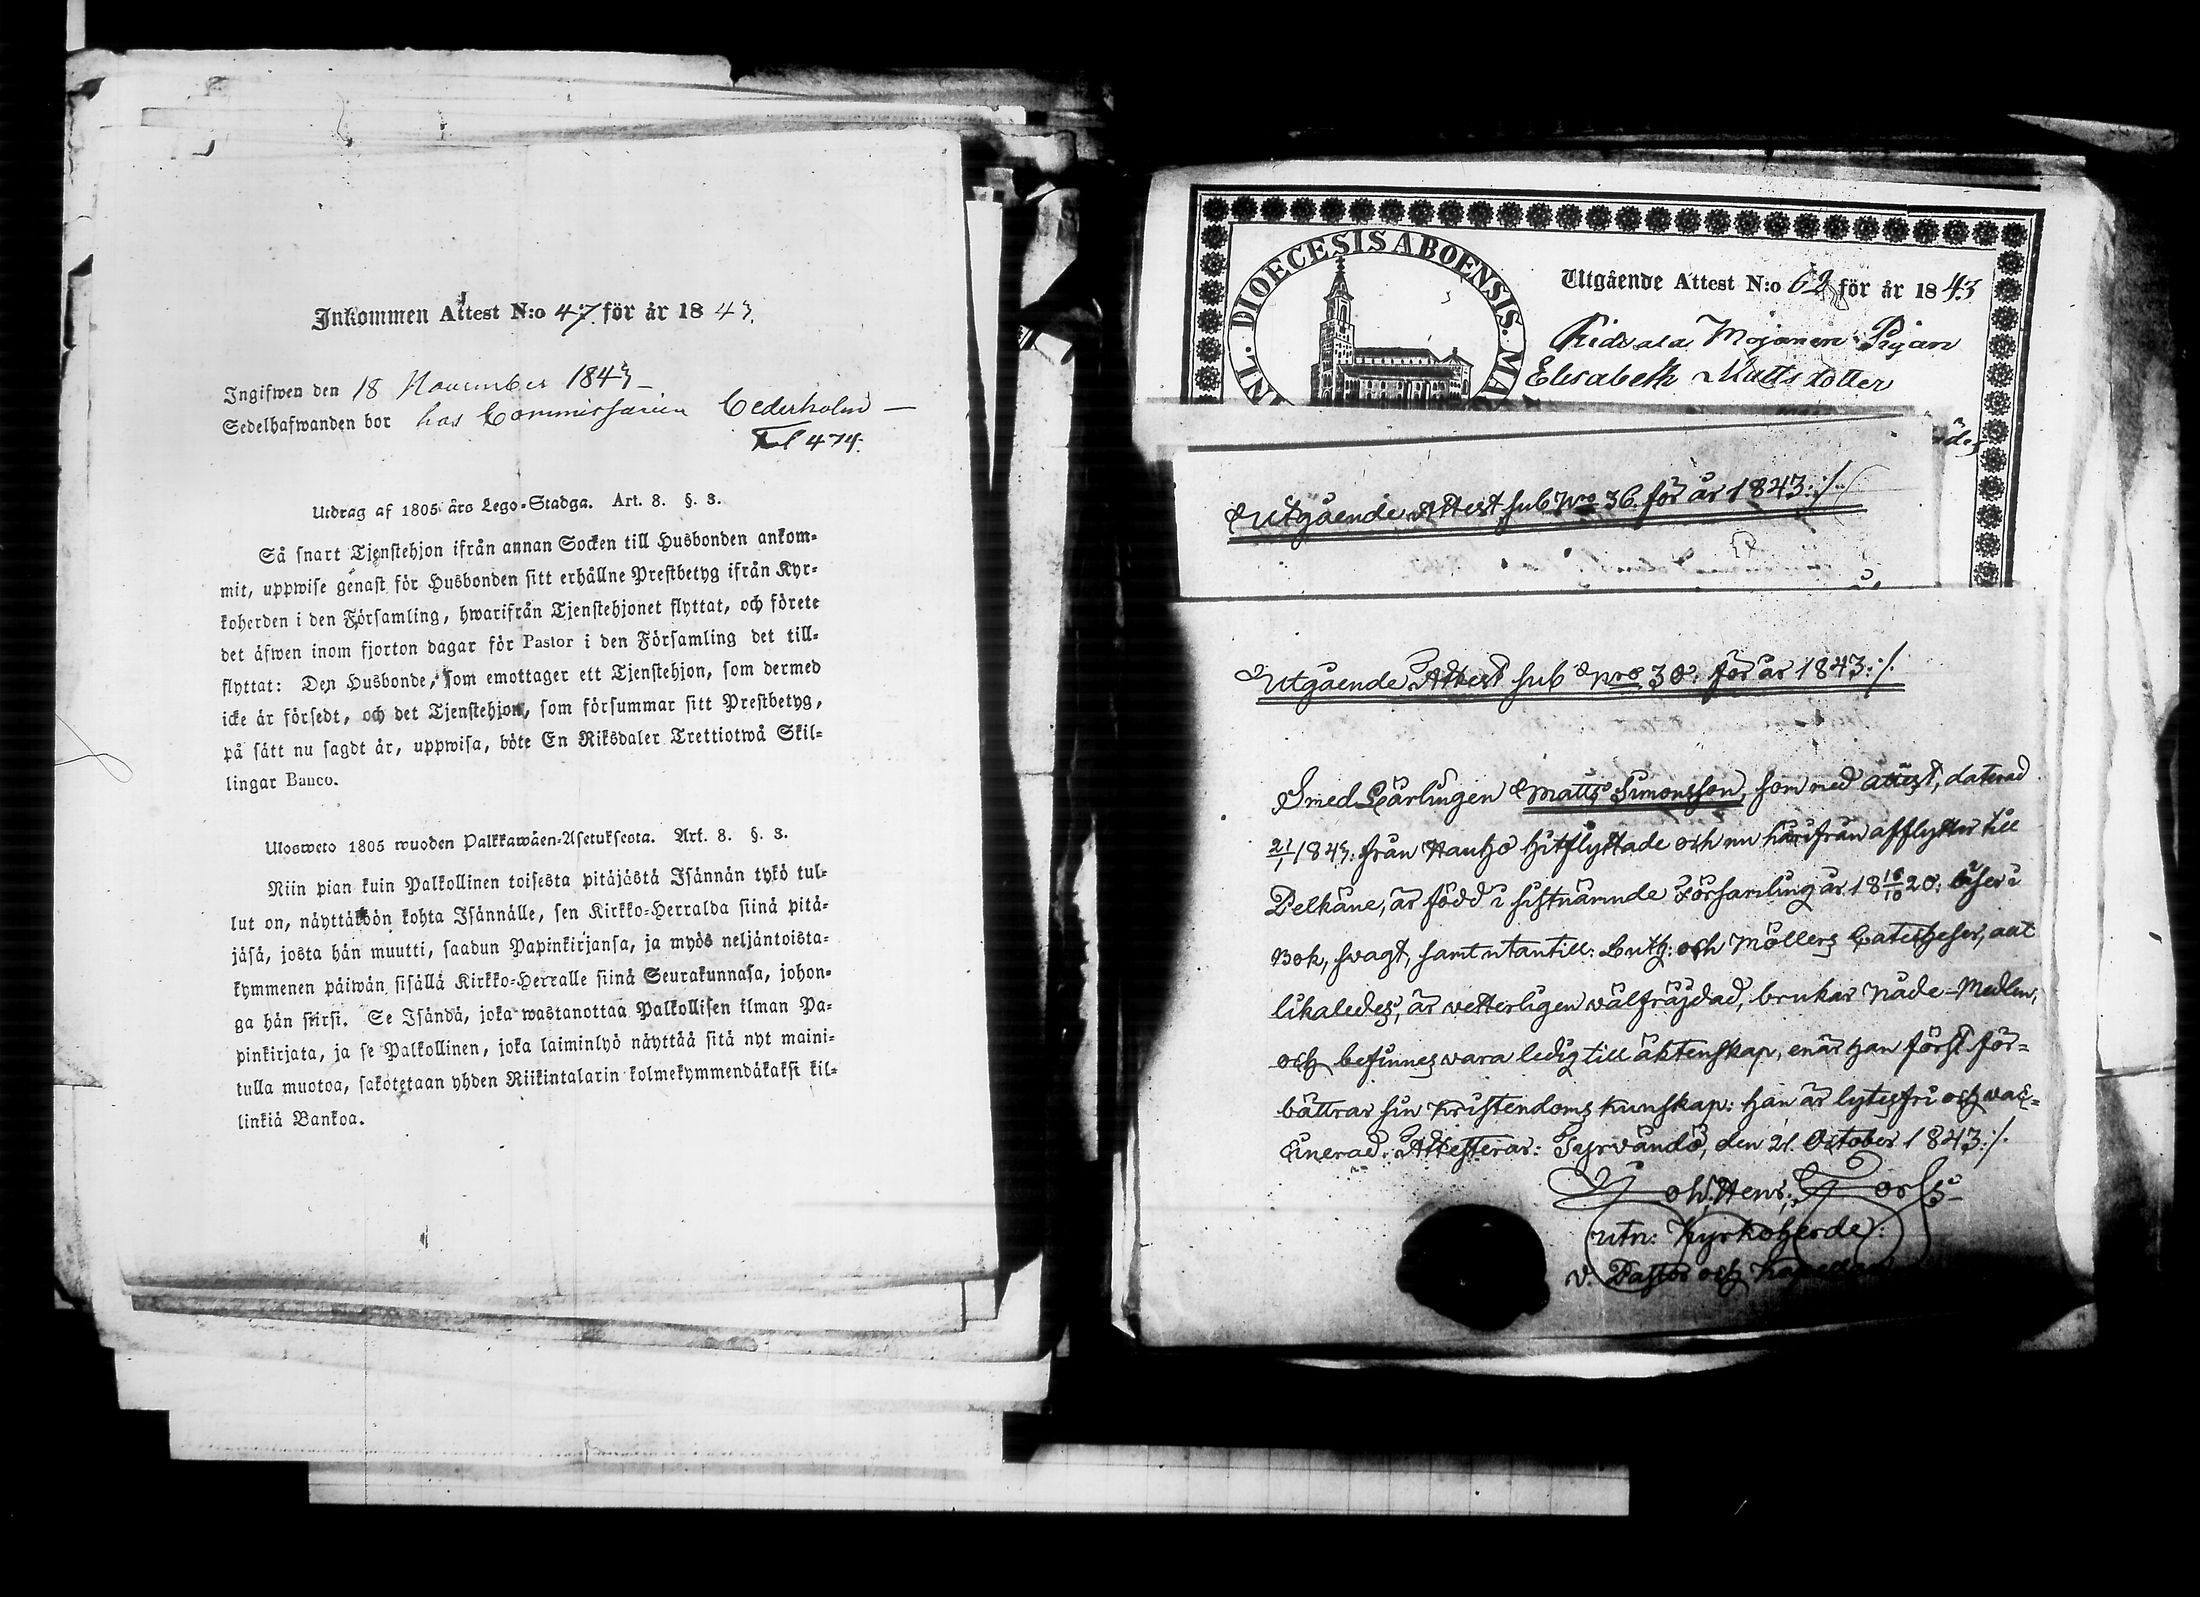 Inkommen Attest N:o 47. för år 1843.
Ingifwen den 18 November 1843
Sedelhafwanden bor hos Commissarien Cederholm
Fol 474.
Utdrag af 1805 års Lego-Stadga. Art. 8. §. 3.
Så snart Tjenstehjon ifrån annan Socken till Husbonden ankom-
mit, uppwise genast för Husbonden sitt erhållne Prestbetyg ifrån Kyr-
koherden i den Församling, hwarifrån Tjenstehjonet flyttat, och förete
det äfwen inom fjorton dagar för Pastor i den Församling det till-
flyttat: Den Husbonde, som emottager ett Tjenstehjon, som dermed
icke är försedt, och det Tjenstehjon, som försummar sitt Prestbetyg,
på sätt nu sagdt är, uppwisa, böte En Riksdaler Trettiotwå Skil-
lingar Banco.
Ulosweto 1805 wuoden Palkkawäen-Asetuksesta. Art. 8. §. 3.
Niin pian kuin Palkollinen toisesta pitäjästä Isännän tykö tul-
lut on, näyttäköön kohta Isännälle, sen Kirkko-Herralda siinä pitä-
jäsä, josta hän muutti, saadun Papinkirjansa, ja myös neljäntoista-
kymmenen päiwän sisällä Kirkko-Herralle siinä Seurakunnasa, johon-
ga hän siirsi. Se Isändä, joka wastanottaa Palkollisen ilman Pa-
pinkirjata, ja se Palkollinen, joka laiminlyö näyttää sitä nyt maini-
tulla muotoa, sakotetaan yhden Riikintalarin kolmekymmendäkaksi kil-
linkiä Bankoa.
DIOECESIS ABOENSIS. MA
Utgående Attest N:o 62 för år 1843
Pigan
Elisabeth Mattsdotter
Utgående Attest sub Nro 36. för år 1843:/.
Utgående Attest sub Nro 30. för år 1843:/.
Smed Lärlingen Matts Simonsson, som med attest, daterad
21/ 1843: från Hauho hitflyttade och nu härifrån afflyttar till
Pelkäne, är född i sistnämnde Församling år 18 16/10 20: läser i
Bok, svagt, samt utantill: Luth: och Möllers Catecheser, aat
likaledes, är vetterligen wälfräjdad, brukar Nåde-Medlen,
och befinnes vara ledig till äktenskap, enär han först för-
bättrar sin Kristendoms kunskap: han är lytesfri och vac-
cinerad. Attesterar: Tyrvändö, den 21. October 1843:/.
Joh. Henr.
utn: Kyrkoherde:
v. Pastor och